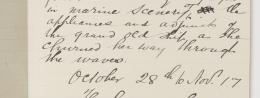 in marine scenery, the
appliances and adjuncts of
the grand old ship as she
churned her way through
the waves.
October 28th to Nov. 17